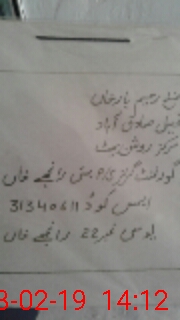 ضلع رحیم یار خان
تحصیل صادق آباد
مرکز روشن بھٹ
گورنمنٹ گرلز پ/س بستی رانجھے خاں
ایمس کوڈ 31340611
یو سی نمبر 22 رانجھے خاں
3-02-19 14:12